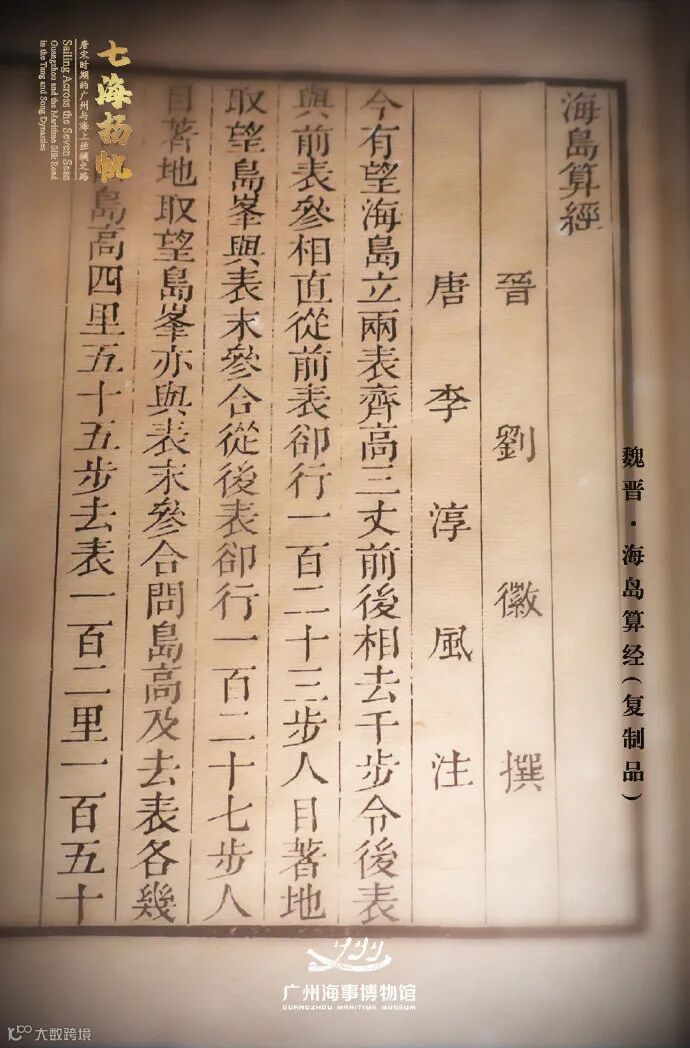 七海扬帆
唐宋时期的广州与海上丝绸之路
Sailing Across the Seven Seas
Guangzhou and the Maritime Silk Road
in the Tang and Song Dynasties
魏晋·海岛算经（复制品）
海島算經
晉劉徽撰
唐李淳風注
今有望海島立兩表齊高三丈前後相去千步令後表
與前表參相直從前表卻行一百二十三步人目著地
取望島峯與表末參合從後表卻行一百二十七步人
目著地取望島峯亦與表末參合問島高及去表各幾
島高四里五十五步去表一百二里一百五十
广州海事博物馆
GUANGZHOU MARITIME MUSEUM
大数跨境